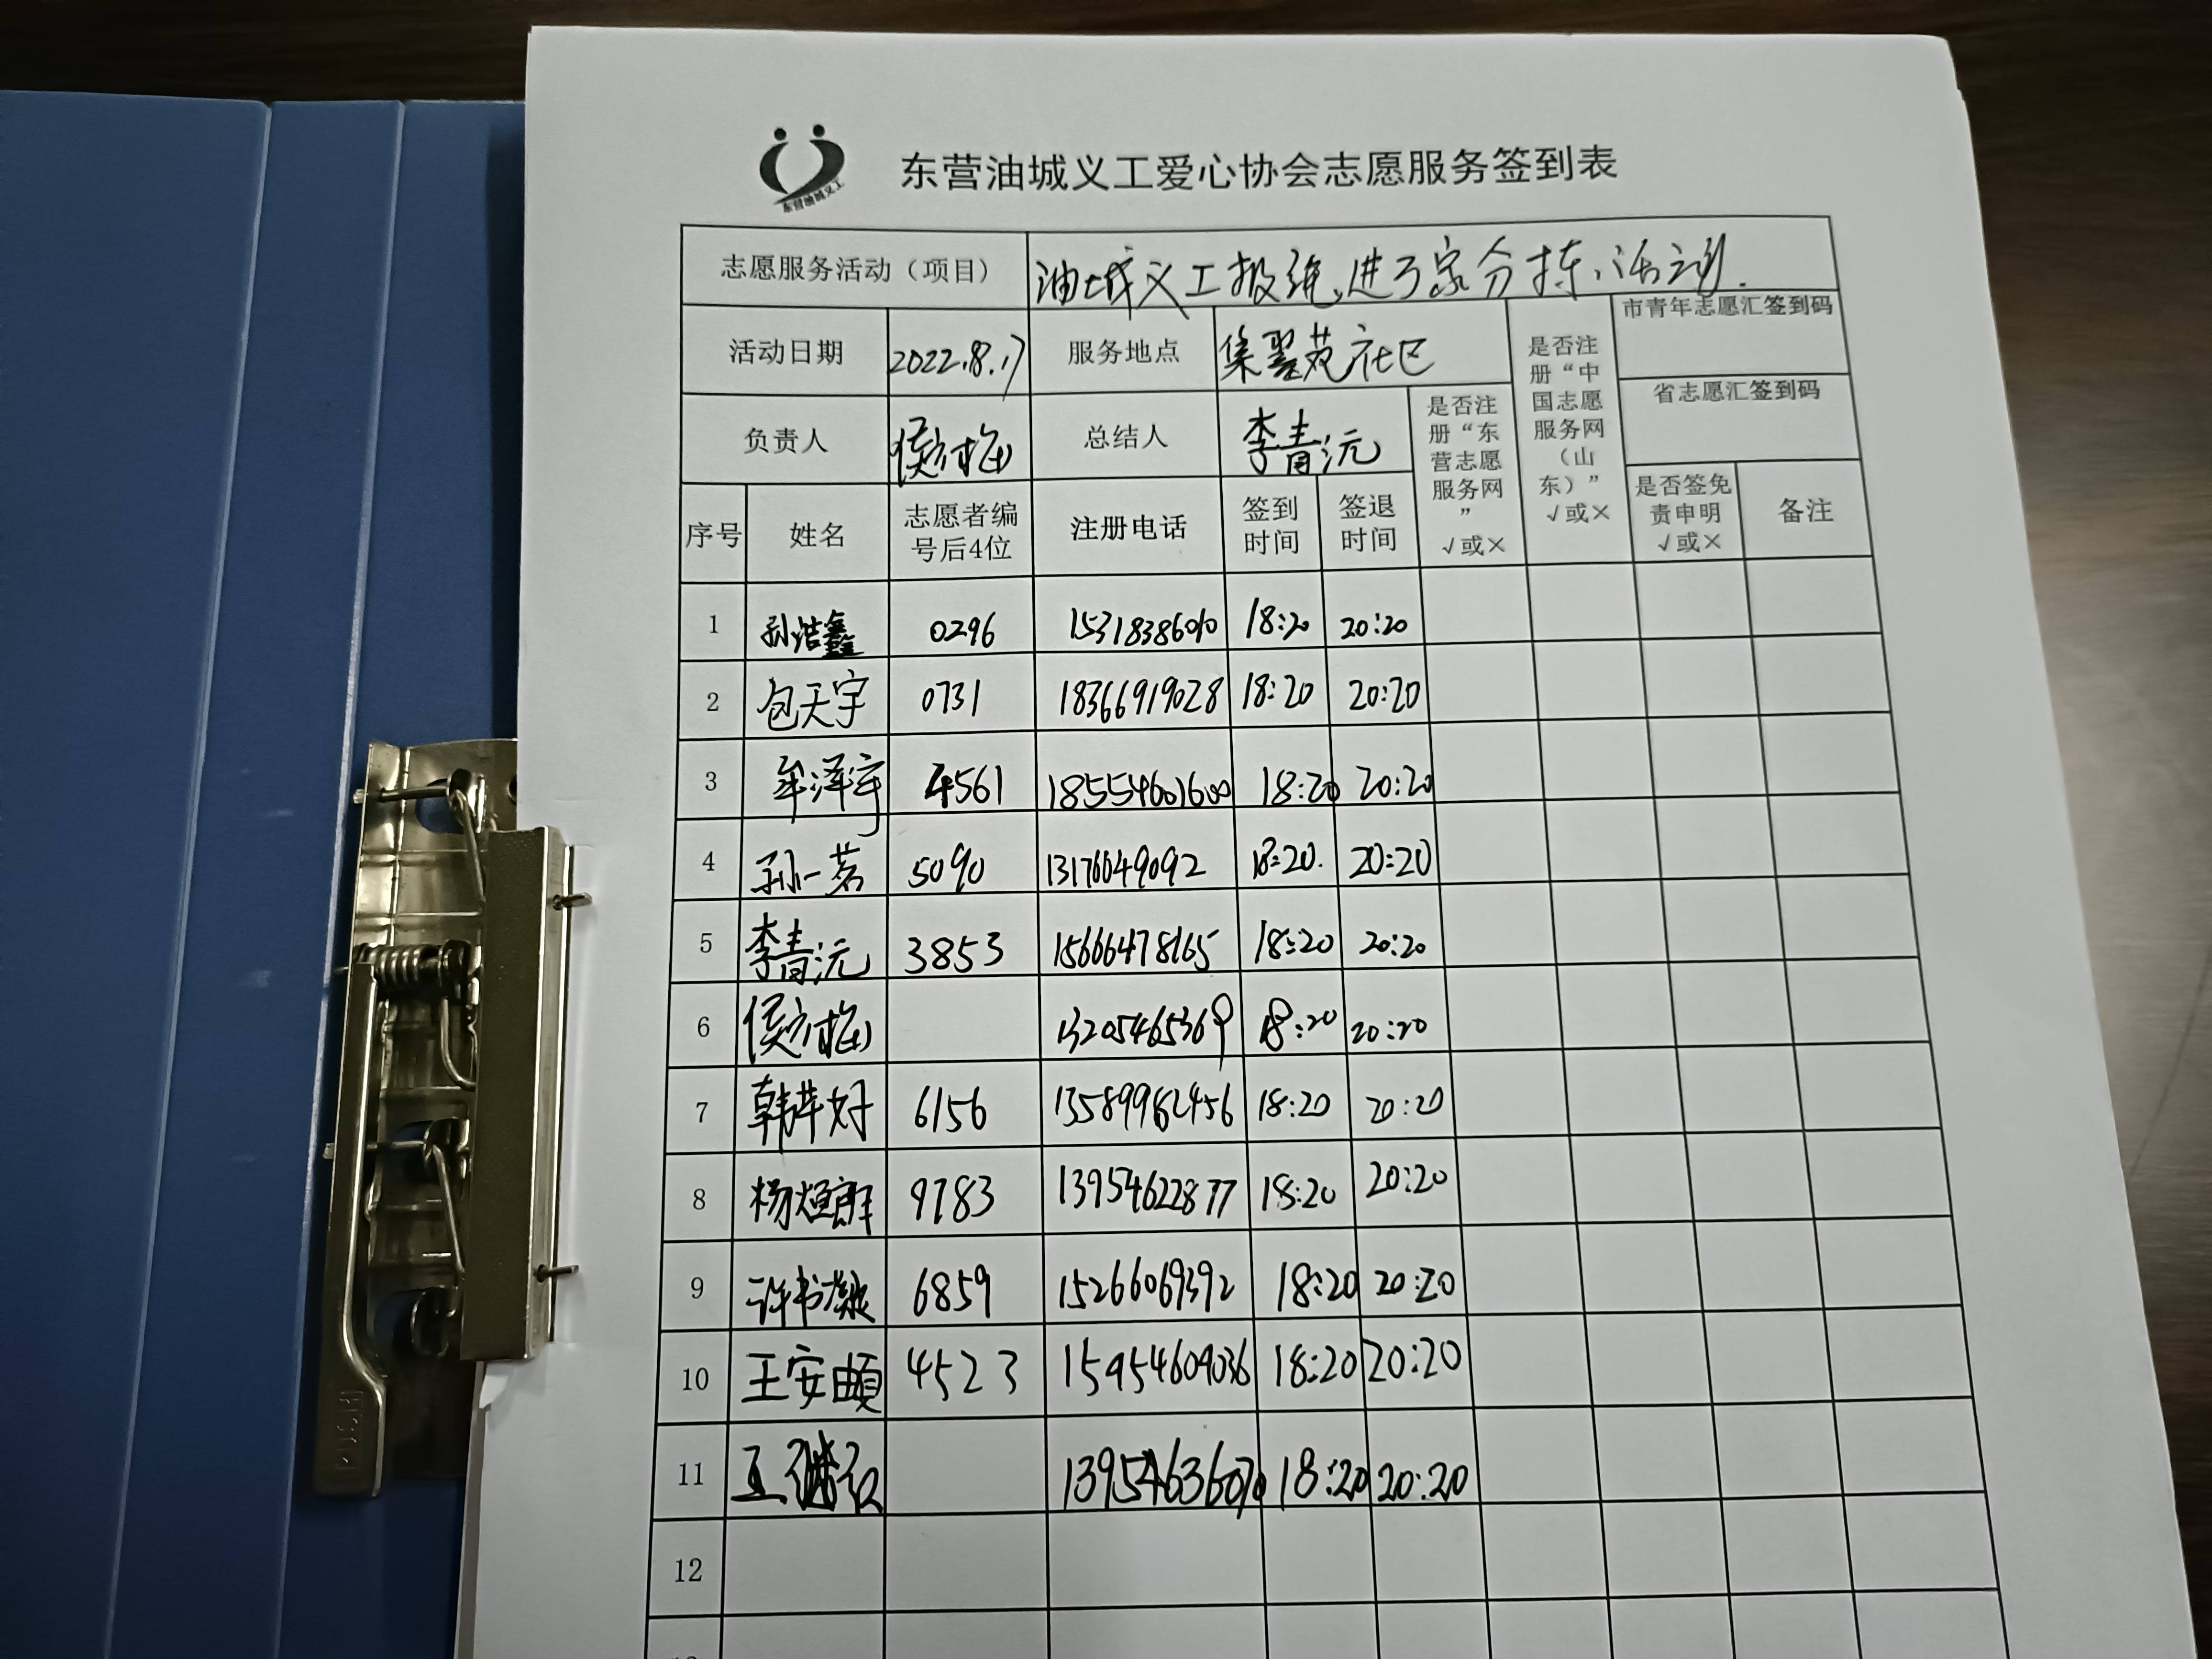 东营油城义工
东营油城义工爱心协会志愿服务签到表
志愿服务活动（项目） 油城义工报纸进万家分拣活动.
活动日期 2022.8.17 服务地点 集翠苑社区
是否注册“中国志愿服务网（山东）” √或×
市青年志愿汇签到码
省志愿汇签到码
负责人 总结人 李青沅
是否注册“东营志愿服务网” √或×
序号 姓名 志愿者编号后4位 注册电话 签到时间 签退时间 是否签免责申明 √或× 备注
1 孙浩鑫 0296 15318386010 18:20 20:20
2 包天宇 0731 18366919028 18:20 20:20
3 牟泽宇 4561 18554601600 18:20 20:20
4 孙一茗 5090 13176649092 18:20. 20:20
5 李青沅 3853 15606478165 18:20 20:20
6 13205465369 18:20 20:20
7 6156 18:20 20:20
8 9783 13954622877 18:20 20:20
9 6859 15266069392 18:20 20:20
10 王安頔 4523 15954609036 18:20 20:20
11 18:20 20:20
12
PUSH